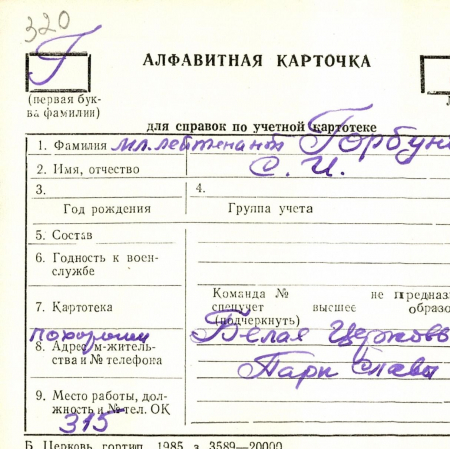 320
Г
АЛФАВИТНАЯ КАРТОЧКА
(первая бук-
ва фамилии)
для справок по учетной картотеке
1. Фамилия мл. лейтенант Горбун
2. Имя, отчество С. И.
3.
4.
Год рождения
Группа учета
5. Состав
6. Годность к воен-
службе
7. Картотека
Команда № не предназ
спецучет высшее образо
(подчеркнуть)
похоронен Белая Церковь
8. Адрес м-житель-
ства и № телефона
Парк Славы
9. Место работы, дол-
жность и № тел. ОК
315
Б. Церковь, гортип. 1985 з. 3589—20000